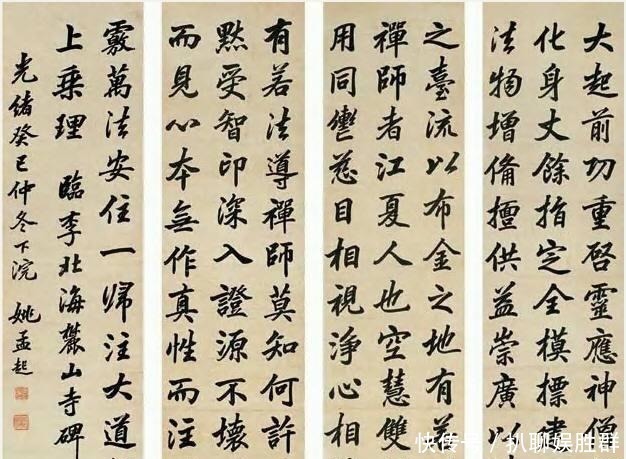 大起前功重啓靈應神僧
化身丈餘指定全模摽建
法物增備擅供益崇廣以
之臺流以布金之地有若
禪師者江夏人也空慧雙
用同轡慈目相視淨心相
有若法導禪師莫知何許
黙受智印深入證源不壞
而見心本無作真性而注
覈萬法安住一歸注大道
上乗理 臨李北海麓山寺碑
光緒癸巳仲冬下浣 姚孟起
快传号/扒聊娱胜群